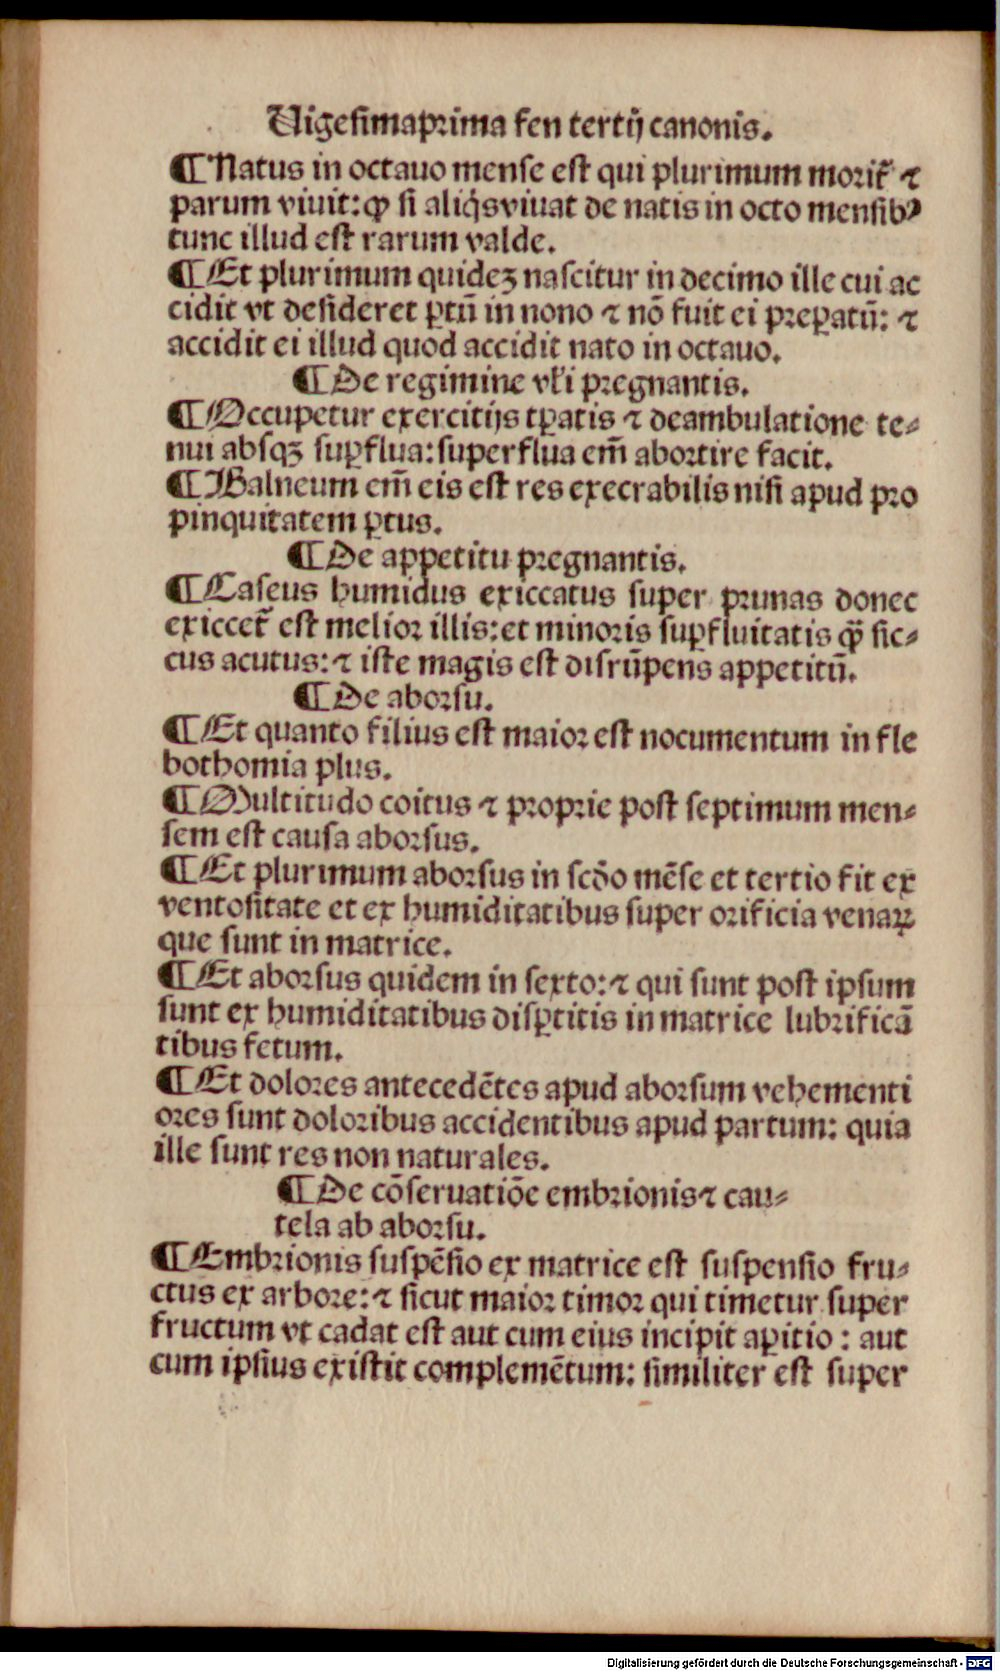 Uigesimaprima fen tertij canonis.
¶ Natus in octauo mense est qui plurimum morit̄ ⁊
parum viuit: ꝙ si aliq̇s viuat de natis in octo mensibꝰ
tunc illud est rarum valde.
¶ Et plurimum quideꝫ nascitur in decimo ille cui ac
cidit vt desideret ꝑtū in nono ⁊ nō fuit ei preꝑatū: ⁊
accidit ei illud quod accidit nato in octauo.
¶ De regimine vl̄i pregnantis.
¶ Occupetur exercitijs tꝑatis ⁊ deambulatione te⸗
nui absqꝫ suꝑflua: superflua em̄ abortire facit.
¶ Balneum em̄ eis est res execrabilis nisi apud pro
pinquitatem ꝑtus.
¶ De appetitu pregnantis.
¶ Caseus humidus exiccatus super prunas donec
exiccet̄ est melior illis: et minoris suꝑfluitatis ꝙ̄ sic⸗
cus acutus: ⁊ iste magis est disrūpens appetitū.
¶ De aborsu.
¶ Et quanto filius est maior est nocumentum in fle
bothomia plus.
¶ Multitudo coitus ⁊ proprie post septimum men⸗
sem est causa aborsus.
¶ Et plurimum aborsus in scd̄o mēse et tertio fit ex
ventositate et ex humiditatibus super orificia venaꝝ
que sunt in matrice.
¶ Et aborsus quidem in sexto: ⁊ qui sunt post ipsum
sunt ex humiditatibus disꝑtitis in matrice lubrificā
tibus fetum.
¶ Et dolores antecedētes apud aborsum vehementi
ores sunt doloribus accidentibus apud partum: quia
ille sunt res non naturales.
¶ De cōseruatiōe embrionis ⁊ cau⸗
tela ab aborsu.
¶ Embrionis suspēsio ex matrice est suspensio fru⸗
ctus ex arbore: ⁊ sicut maior timor qui timetur super
fructum vt cadat est aut cum eius incipit aꝑitio : aut
cum ipsius existit complemētum: similiter est super
Digitalisierung gefördert durch die Deutsche Forschungsgemeinschaft - DFG